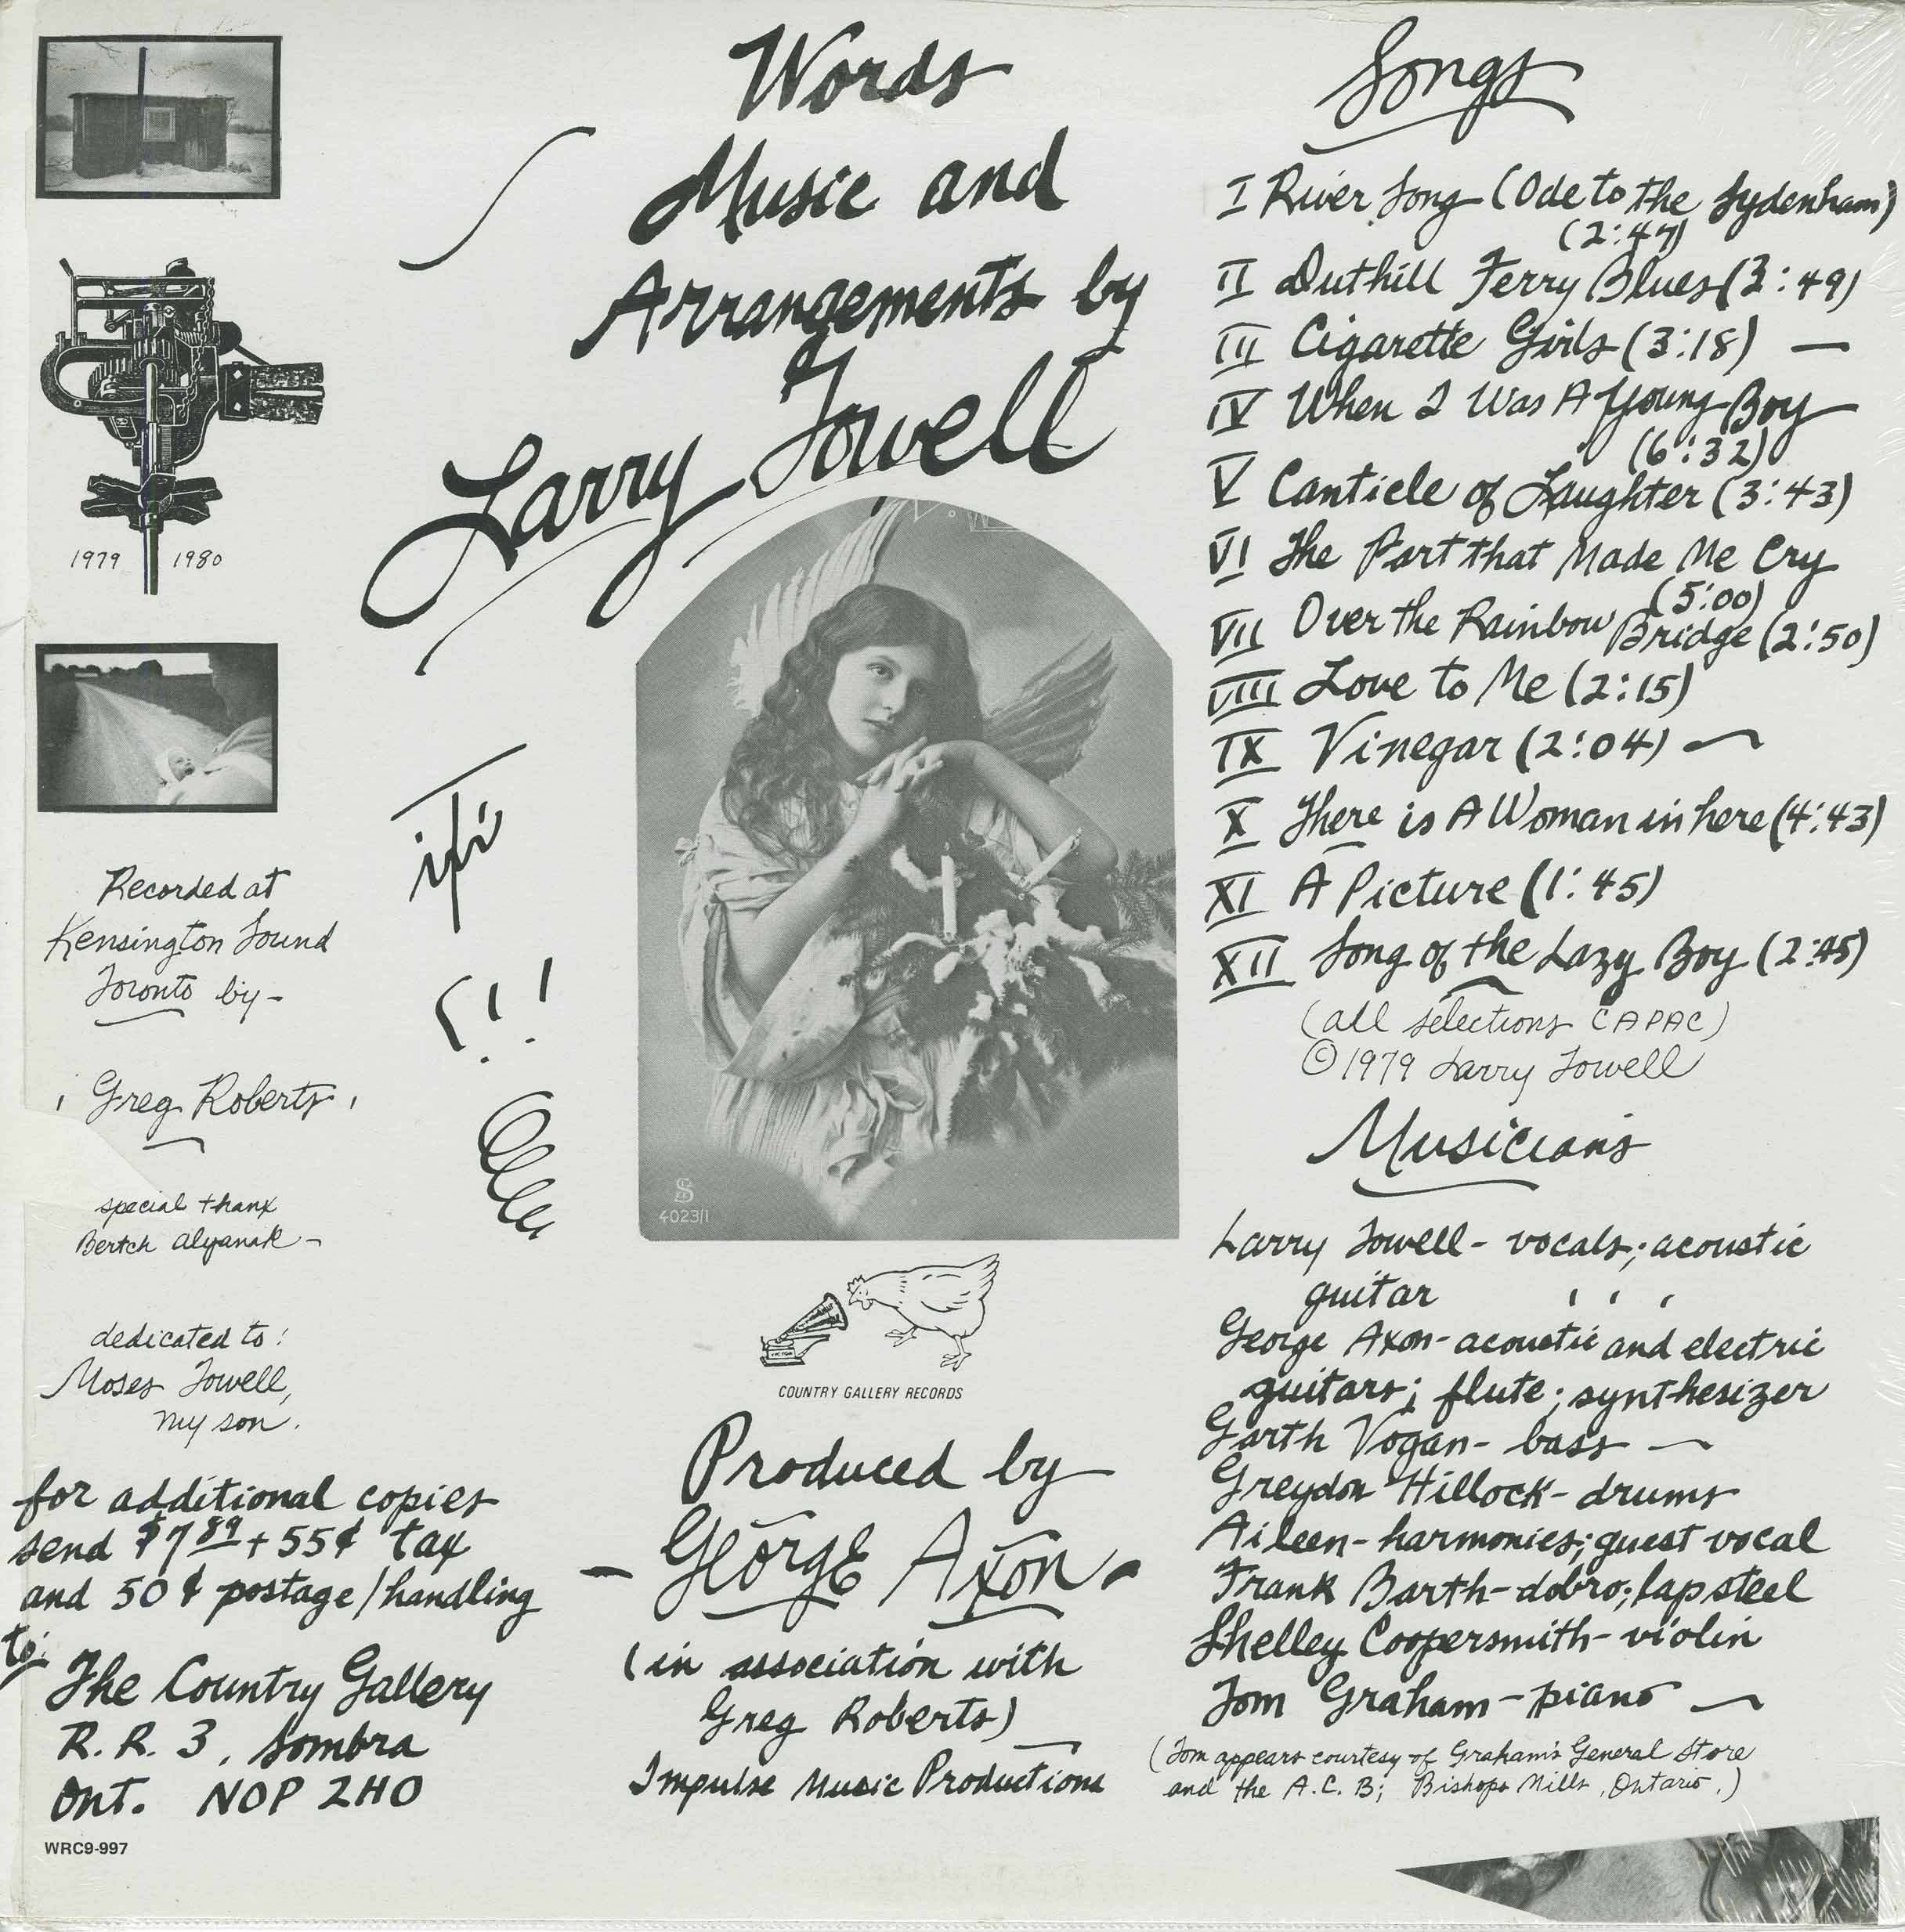 Words
Music and
Arrangements by
Larry Towell
1979 1980
Recorded at
Kensington Sound
Toronto by-
Greg Roberts
special thanx
Bertch Alyanak-
dedicated to:
Moses Towell,
my son.
for additional copies
send $7.89 + 55¢ tax
and 50¢ postage/handling
to:
The Country Gallery
R. R. 3, Sombra
Ont. NOP 2HO
WRC9-997
S
4023/1
VICTOR
COUNTRY GALLERY RECORDS
Produced by
- George Axon -
(in association with
Greg Roberts)
Impulse Music Productions
Songs
I River Song (Ode to the Sydenham)
(2:47)
II Duthill Ferry Blues (3:49)
III Cigarette Girls (3:18) —
IV When I Was A Young Boy
(6:32)
V Canticle of Laughter (3:43)
VI The Part that Made Me Cry
(5:00)
VII Over the Rainbow Bridge (2:50)
VIII Love to Me (2:15)
IX Vinegar (2:04)
X There is A Woman in here (4:43)
XI A Picture (1:45)
XII Song of the Lazy Boy (2:45)
(all selections CAPAC)
©1979 Larry Towell
Musicians
Larry Towell- vocals; acoustic
guitar
George Axon- acoustic and electric
guitars; flute; synthesizer
Garth Vogan- bass
Greydon Hillock- drums
Aileen- harmonies; guest vocal
Frank Barth- dobro; lap steel
Shelley Coopersmith- violin
Tom Graham- piano
(Tom appears courtesy of Graham's General Store
and the A.C.B; Bishops Mills, Ontario.)